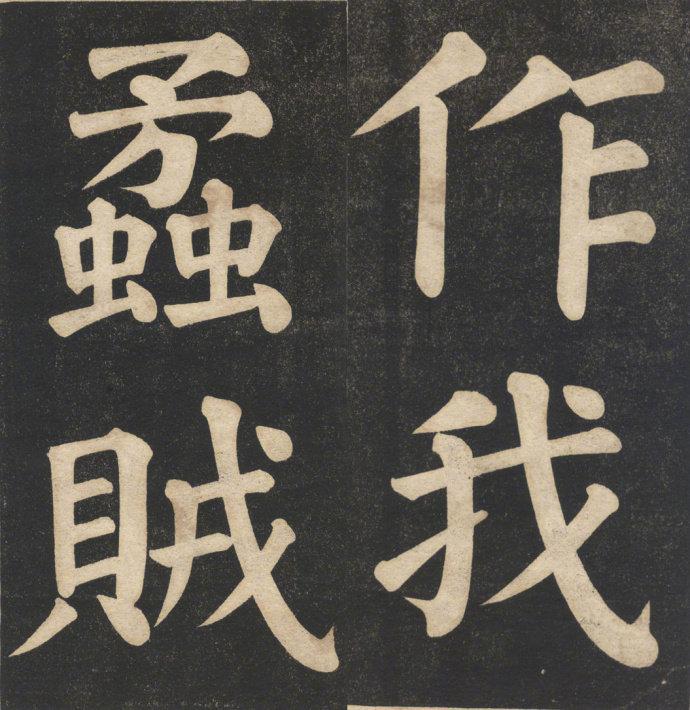 作我
蟊賊